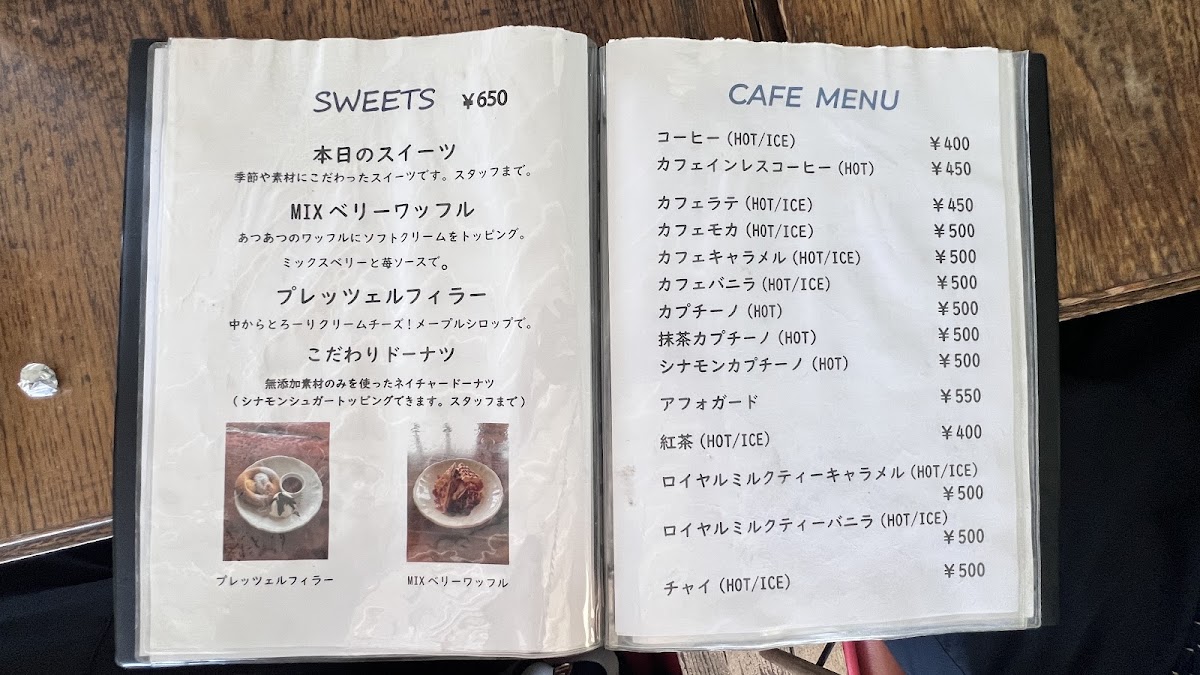 SWEETS ¥650
本日のスイーツ
季節や素材にこだわったスイーツです。スタッフまで。
MIXベリーワッフル
あつあつのワッフルにソフトクリームをトッピング。
ミックスベリーと苺ソースで。
プレッツェルフィラー
中からとろーりクリームチーズ！メープルシロップで。
こだわりドーナツ
無添加素材のみを使ったネイチャードーナツ
（シナモンシュガートッピングできます。スタッフまで）
プレッツェルフィラー
MIXベリーワッフル
CAFE MENU
コーヒー（HOT/ICE） ¥400
カフェインレスコーヒー（HOT） ¥450
カフェラテ（HOT/ICE） ¥450
カフェモカ（HOT/ICE） ¥500
カフェキャラメル（HOT/ICE） ¥500
カフェバニラ（HOT/ICE） ¥500
カプチーノ（HOT） ¥500
抹茶カプチーノ（HOT） ¥500
シナモンカプチーノ（HOT） ¥500
アフォガード ¥550
紅茶（HOT/ICE） ¥400
ロイヤルミルクティーキャラメル（HOT/ICE）
¥500
ロイヤルミルクティーバニラ（HOT/ICE）
¥500
チャイ（HOT/ICE） ¥500